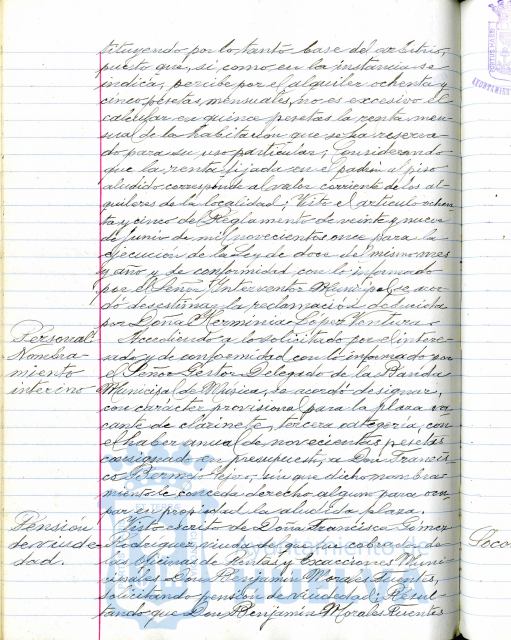 tituyendo por lo tanto base del arbitrio,
puesto que, si como en la instancia se
indica, percibe por el alquiler ochenta y
cinco pesetas mensuales, no es excesivo el
calcular en quince pesetas la renta men-
sual de la habitación que se ha reserva-
do para su uso particular; Considerando
que la renta fijada en el padrón al piso
aludido corresponde al valor corriente de los al-
quileres de la localidad; Visto el artículo ochen-
ta y cinco del Reglamento de veinte y nueve
de Junio de mil novecientos once para la
ejecución de la Ley de doce del mismo mes
y año y de conformidad con lo informado
por el Señor Interventor Municipal, se acor-
dó desestimar la reclamación deducida
por Doña Herminia López Ventura.
Personal.
Nombra-
miento
interino
Accediendo a lo solicitado por el intere-
sado y de conformidad con lo informado por
el Señor Gestor Delegado de la Banda
Municipal de Música, se acordó designar,
con carácter provisional para la plaza va-
cante de clarinete, tercera categoría, con
el haber anual de novecientas pesetas
consignado en presupuesto, a Don Francis-
co Bermejo Tejero, sin que dicho nombra-
miento le conceda derecho alguno para ocu-
par en propiedad la aludida plaza.
Pensión
de viude-
dad.
Visto escrito de Doña Francisca Gómez
Rodríguez, viuda del que fué cobrador de
las Oficinas de Rentas y Exacciones Muni-
cipales Don Benjamín Morales Fuentes,
solicitando pensión de viudedad; Resul-
tando que Don Benjamín Morales Fuentes
Soco